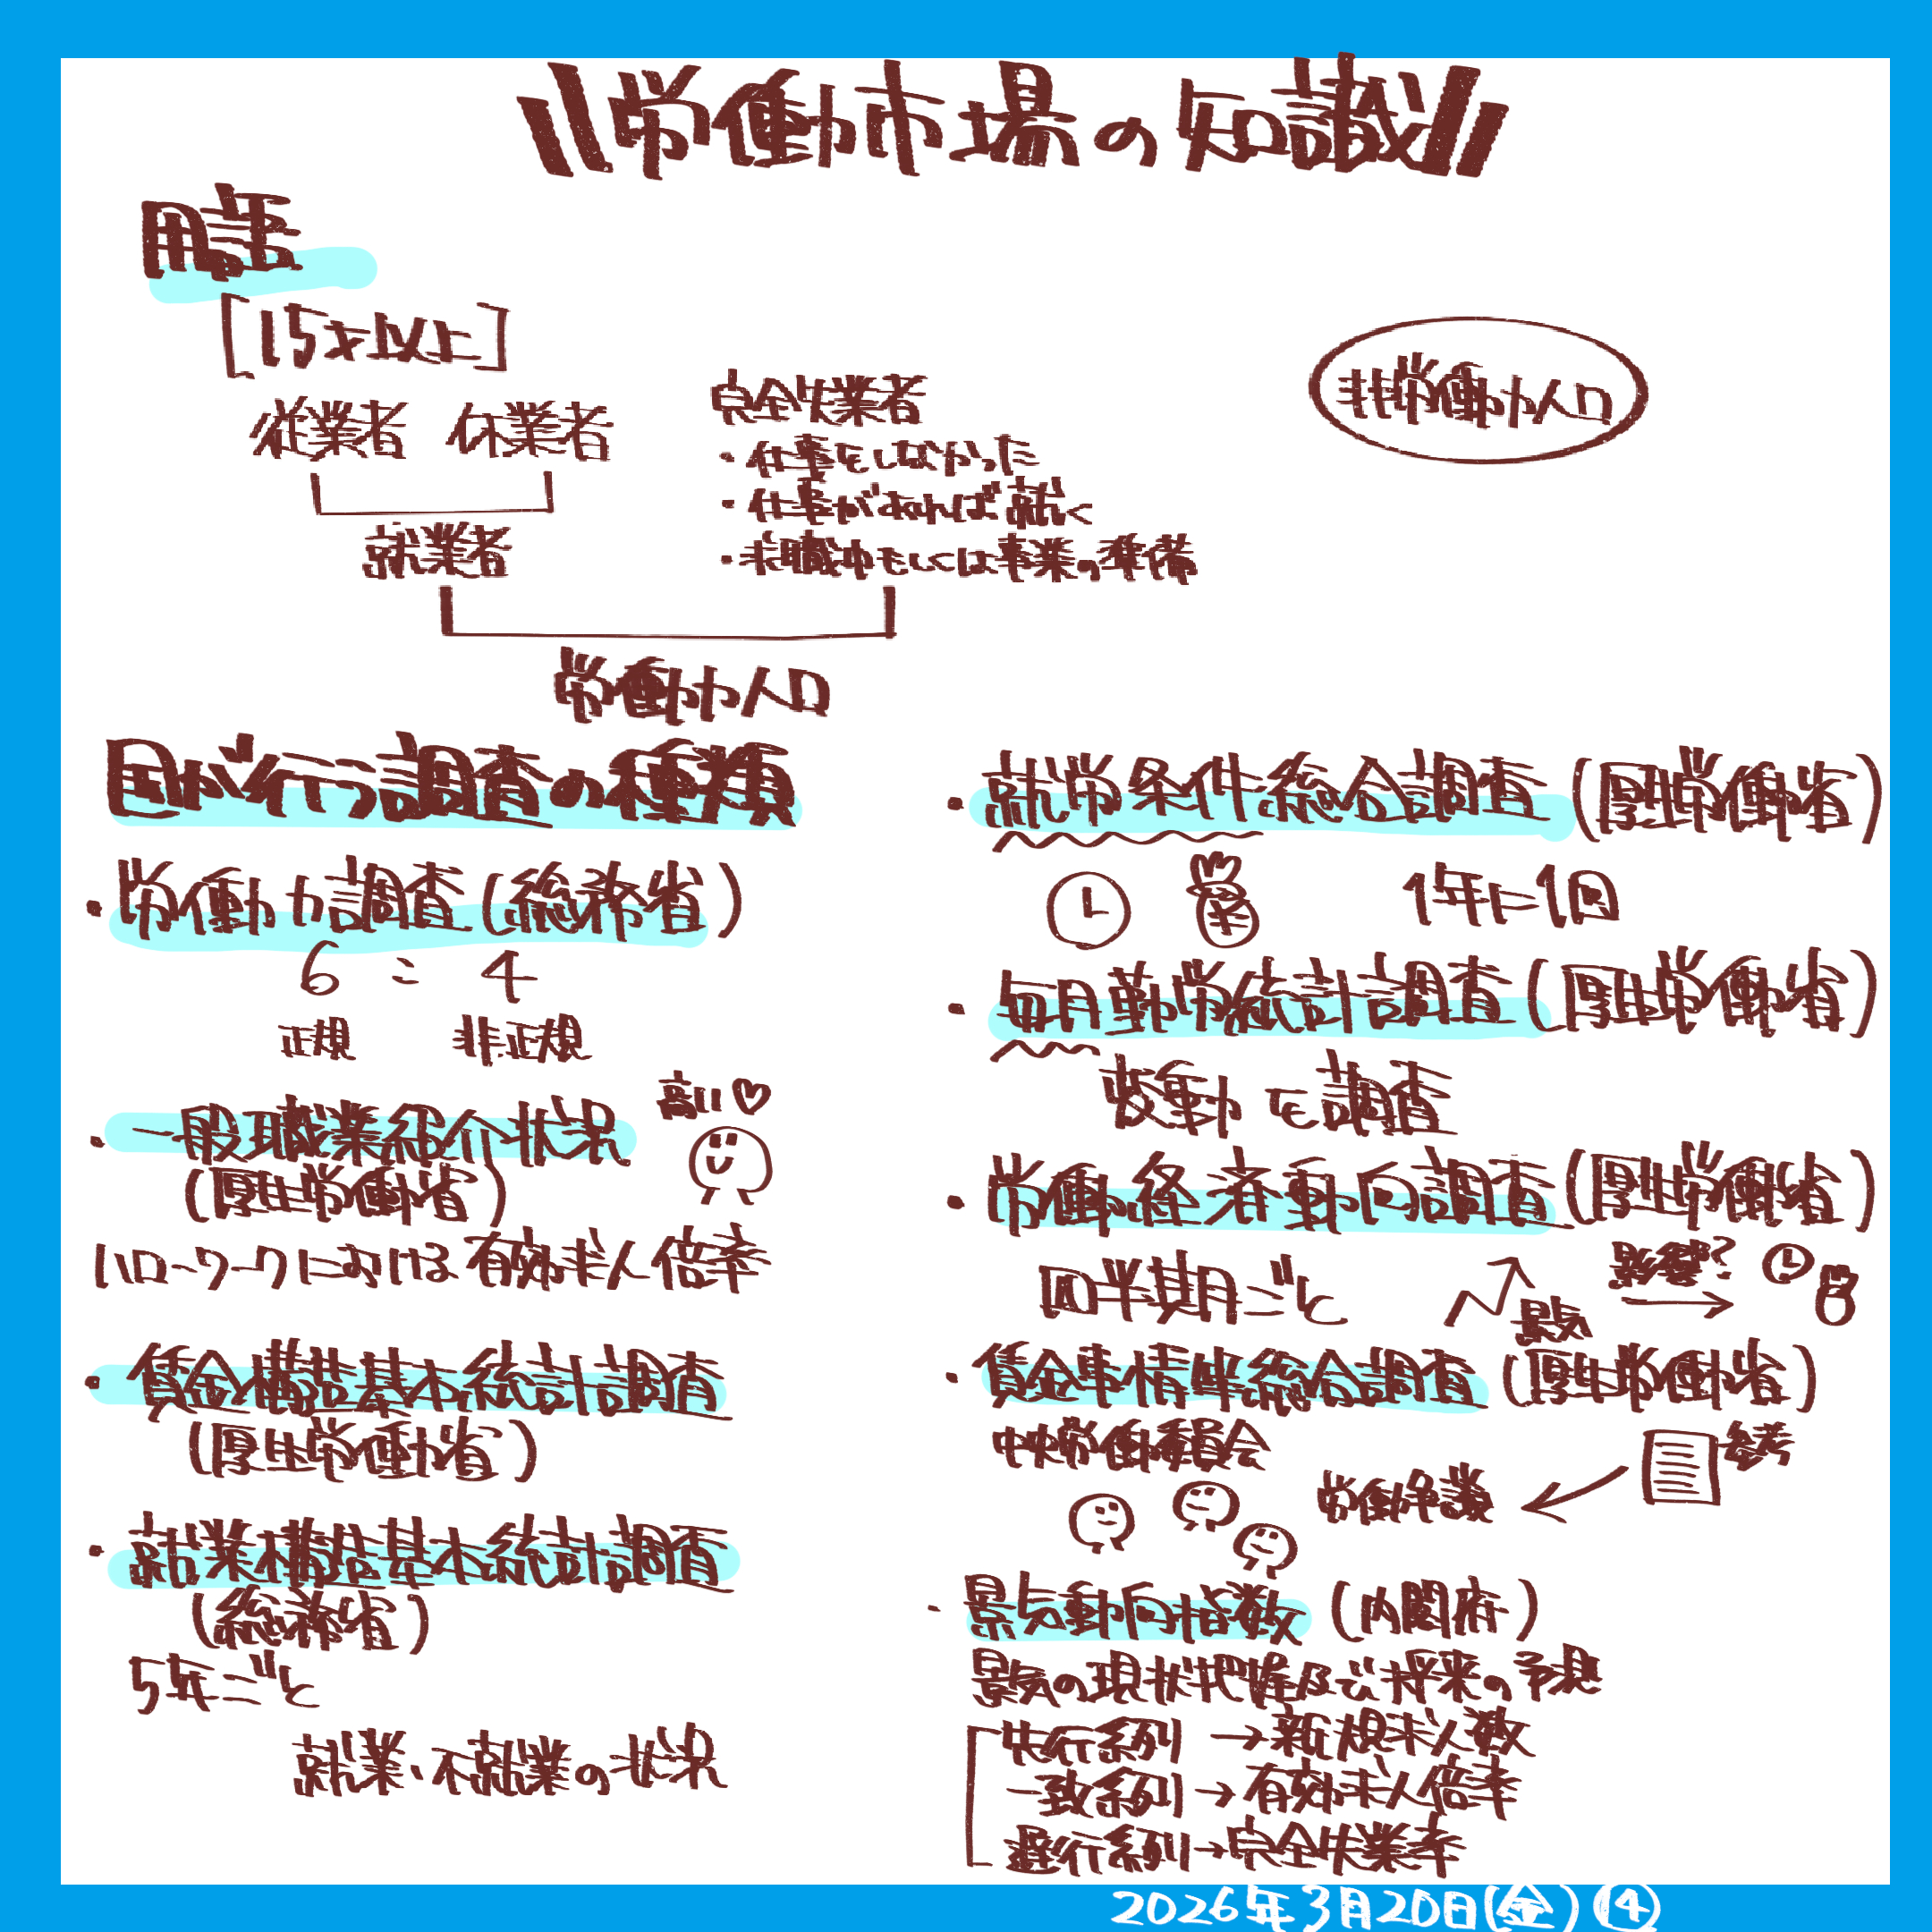 労働市場の知識
用語
[15才以上]
従業者 休業者
就業者
完全失業者
・仕事をしなかった
・仕事があれば就く
・求職中もしくは事業の準備
労働力人口
非労働力人口
国が行う調査の種類
・労働力調査(総務省)
6 : 4
正規 非正規
・一般職業紹介状況
(厚生労働省)
高い♡
ハローワークにおける有効求人倍率
・賃金構造基本統計調査
(厚生労働省)
・就業構造基本統計調査
(総務省)
5年ごと
就業・不就業の状況
・就労条件総合調査(厚生労働省)
¥ 1年に1回
・毎月勤労統計調査(厚生労働省)
変動を調査
・労働経済動向調査(厚生労働省)
四半期ごと
景気
影響?
・賃金事情等総合調査(厚生労働省)
中央労働委員会
参考
労働争議
・景気動向指数(内閣府)
景気の現状把握及び将来の予測
先行系列→新規求人数
一致系列→有効求人倍率
遅行系列→完全失業率
2026年3月20日(金)④